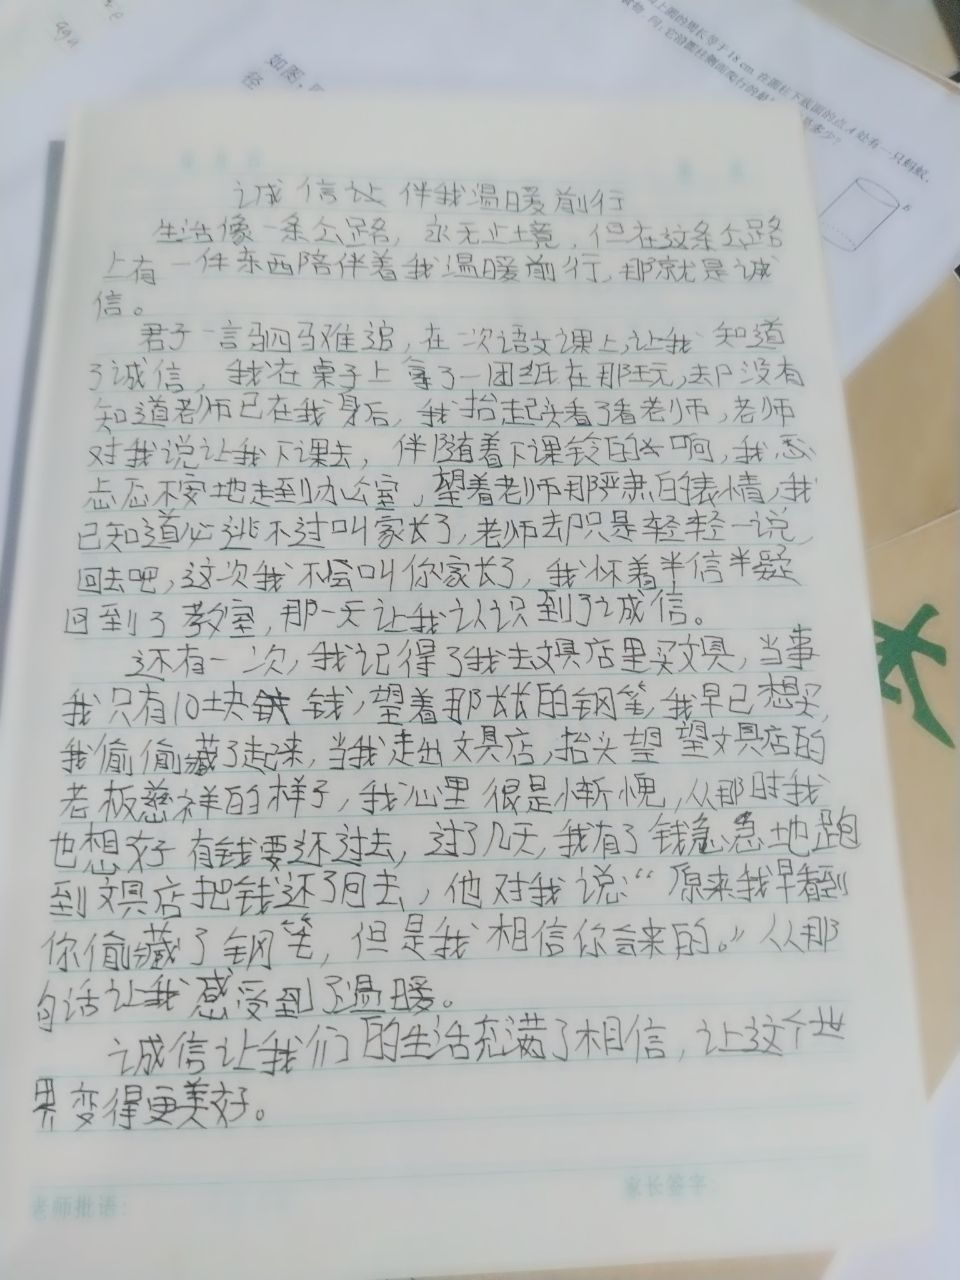 如图，
径
的周长等于18 cm，在圆柱下底面的点A处有一只蚂蚁，
它沿圆柱侧面爬行的最
是多少？
诚信让 伴我温暖前行
生活像一条公路，永无止境，但在这条公路
上有一件东西陪伴着我温暖前行，那就是诚
信。
君子一言驷马难追，在一次语文课上，让我知道
了诚信，我在桌子上拿了一团纸在那玩，却没有
知道老师已在我身后，我抬起头看了看老师，老师
对我说让我下课去，伴随着下课铃的响，我忐
忐忑不安地走到办公室，望着老师那严肃的表情，我
已知道必逃不过叫家长了，老师却只是轻轻一说，
回去吧，这次我不会叫你家长了，我怀着半信半疑
回到了教室，那一天让我认识到了诚信。
还有一次，我记得了我去文具店里买文具，当事
我只有10块钱，望着那长长的钢笔，我早已想买，
我偷偷藏了起来，当我走出文具店，抬头望望文具店的
老板慈祥的样子，我心里很是惭愧，从那时我
也想好有钱要还过去，过了几天，我有了钱急急地跑
到文具店把钱还了回去，他对我说：“原来我早看到
你偷藏了钢笔，但是我相信你会来的。”从那
句话让我感受到了温暖。
诚信让我们的生活充满了相信，让这个世
界变得更美好。
老师批语：
家长签字：